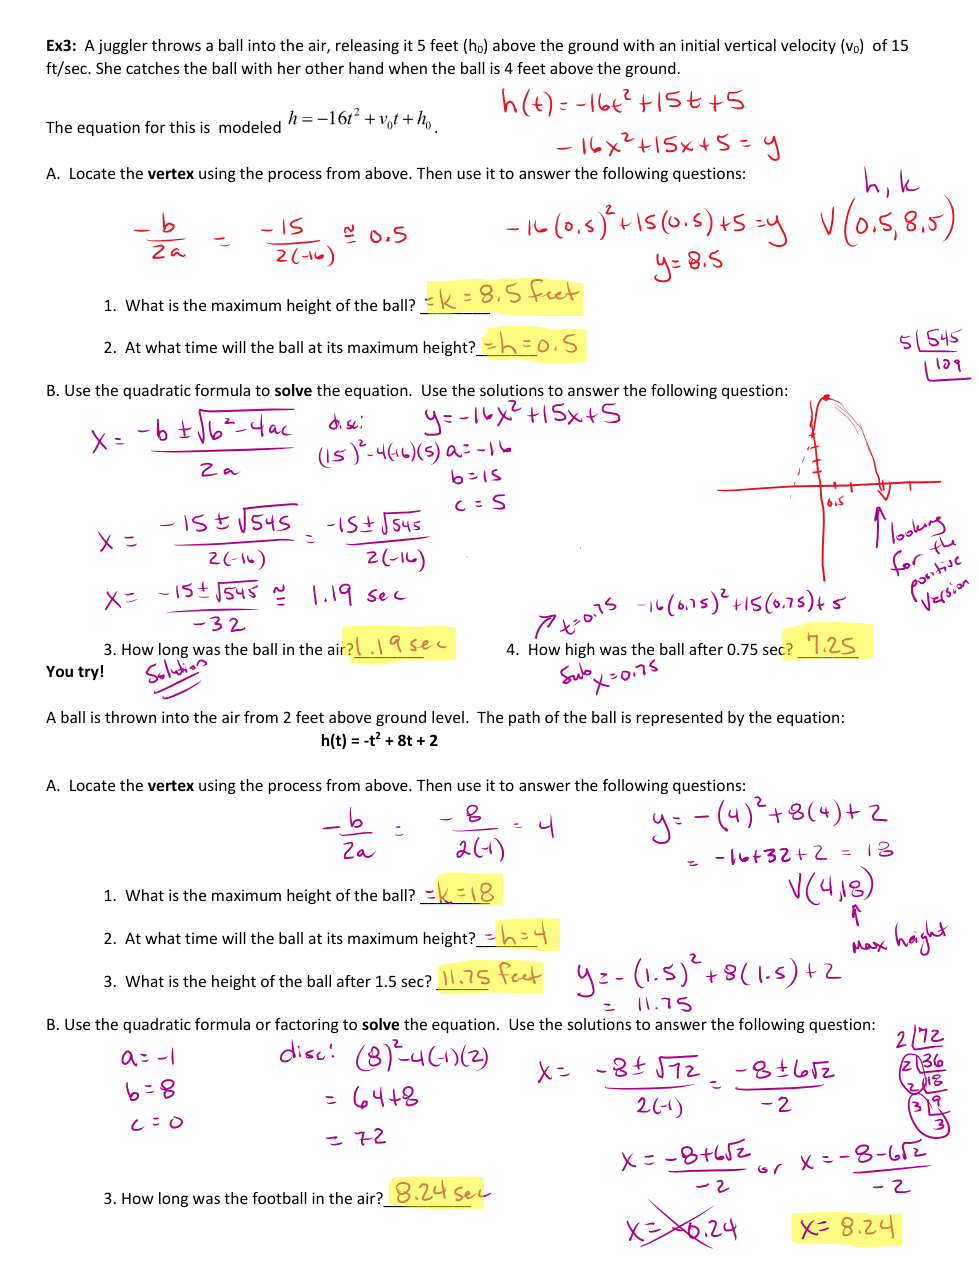 Ex3: A juggler throws a ball into the air, releasing it 5 feet (h₀) above the ground with an initial vertical velocity (v₀) of 15
ft/sec. She catches the ball with her other hand when the ball is 4 feet above the ground.
h(t) = -16t² + 15t + 5
The equation for this is modeled h = −16t² + v₀t + h₀ .
-16x² + 15x + 5 = y
A. Locate the vertex using the process from above. Then use it to answer the following questions:
h, k
-b/2a = -15/2(-16) ≅ 0.5
-16(0.5)² + 15(0.5) + 5 = y
V(0.5, 8.5)
y = 8.5
1. What is the maximum height of the ball? = k = 8.5 feet
2. At what time will the ball at its maximum height? = h = 0.5
5 | 545
109
B. Use the quadratic formula to solve the equation. Use the solutions to answer the following question:
x = -b ± √b² - 4ac / 2a
disc:
y = -16x² + 15x + 5
(15)² - 4(-16)(5)
a = -16
b = 15
c = 5
0.5
x = -15 ± √545 / 2(-16) = -15 ± √545 / 2(-16)
looking
for the
positive
version
x = -15 ± √545 / -32 ≅ 1.19 sec
x = 0.75
-16(0.75)² + 15(0.75) + 5
3. How long was the ball in the air? 1.19 sec
4. How high was the ball after 0.75 sec? 7.25
You try!
Solution
Sub x = 0.75
A ball is thrown into the air from 2 feet above ground level. The path of the ball is represented by the equation:
h(t) = -t² + 8t + 2
A. Locate the vertex using the process from above. Then use it to answer the following questions:
-b/2a = -8/2(-1) = 4
y = -(4)² + 8(4) + 2
= -16 + 32 + 2 = 18
V(4, 18)
1. What is the maximum height of the ball? = k = 18
2. At what time will the ball at its maximum height? = h = 4
Max height
3. What is the height of the ball after 1.5 sec? 11.75 feet
y = -(1.5)² + 8(1.5) + 2
= 11.75
B. Use the quadratic formula or factoring to solve the equation. Use the solutions to answer the following question:
a = -1
b = 8
c = 0
disc: (8)² - 4(-1)(2)
= 64 + 8
= 72
x = -8 ± √72 / 2(-1) = -8 ± 6√2 / -2
2 | 72
2 | 36
2 | 18
3 | 9
3
x = -8 + 6√2 / -2 or x = -8 - 6√2 / -2
3. How long was the football in the air? 8.24 sec
x = -0.24
x = 8.24